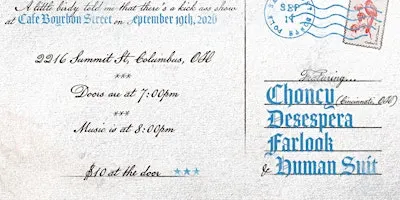 A little birdy told me that there's a kick ass show
at Cafe Bourbon Street on September 19th, 2026
2216 Summit St, Columbus, OH
***
Doors are at 7:00pm
***
Music is at 8:00pm
$10 at the door ★★★
SEP
Featuring...
Choncy (Cincinnati, OH)
Desespera
Farlook
& Human Suit